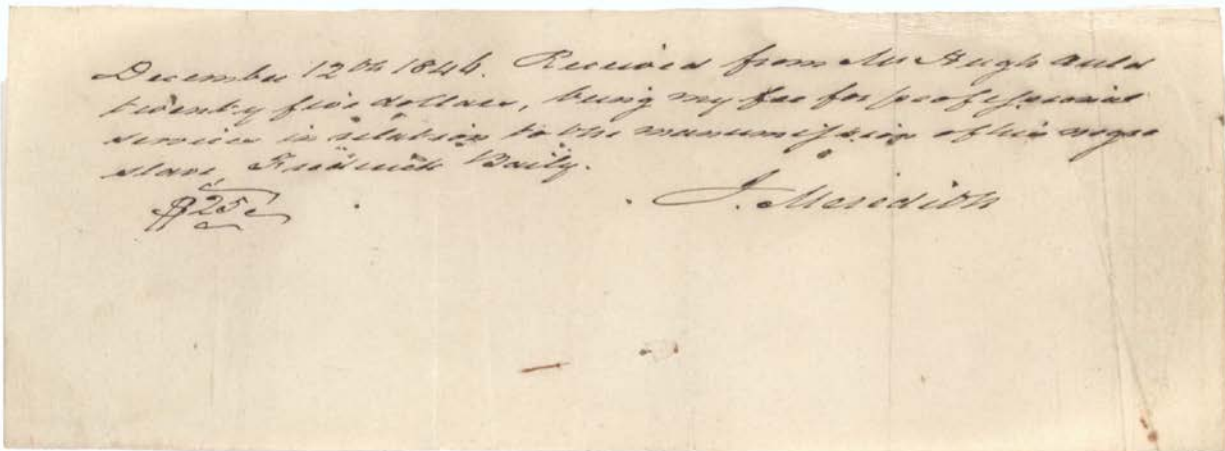 December 12th 1846. Received from Mr Hugh Auld
twenty five dollars, being my fee for professional
services in relation to the manumission of his negro
slave Frederick Baily.
$25 J. Meredith